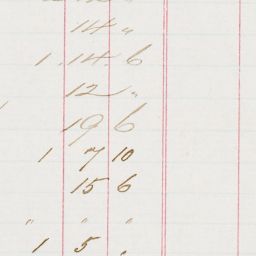 14 "
1 . 14 . 6
12 "
19 6
1 7 10
15 6
" " "
1 5 "